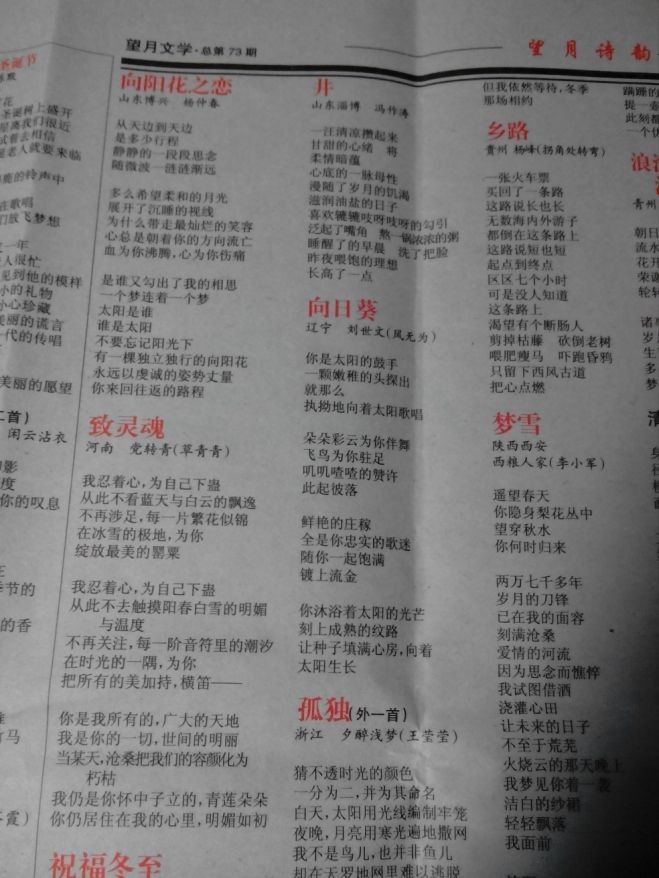 望月文学·总第73期
望月诗韵
圣诞节
圣诞树上盛开
星离我们很近
试着去相信
老人就要来临
鹿的铃声中
在歌唱
们放飞梦想
一年
人很忙
见到他的模样
小的礼物
小心珍藏
美丽的谎言
代的传唱
美丽的愿望
二首)
闲云沾衣
幻影
度
你的叹息
季节的
的香
竹马
向阳花之恋
山东博兴 杨仲春
从天边到天边
是多少行程
静静的一段段思念
随微波一涟涟渐远
多么希望柔和的月光
展开了沉睡的视线
为什么带走最灿烂的笑容
心总是朝着你的方向流亡
血为你沸腾,心为你伤痛
是谁又勾出了我的相思
一个梦连着一个梦
太阳是谁
谁是太阳
不要忘记阳光下
有一棵独立独行的向阳花
永远以虔诚的姿势丈量
你来回往返的路程
致灵魂
河南 党转青(草青青)
我忍着心,为自己下蛊
从此不看蓝天与白云的飘逸
不再涉足,每一片繁花似锦
在冰雪的极地,为你
绽放最美的罂粟
我忍着心,为自己下蛊
从此不去触摸阳春白雪的明媚
与温度
不再关注,每一阶音符里的潮汐
在时光的一隅,为你
把所有的美加持,横笛——
你是我所有的,广大的天地
我是你的一切,世间的明丽
当某天,沧桑把我们的容颜化为
朽枯
我仍是你怀中子立的,青莲朵朵
你仍居住在我的心里,明媚如初
祝福冬至
井
山东淄博 冯作涛
一汪清凉攒起来
甘甜的心绪 将
柔情暗蕴
心底的一脉母性
漫随了岁月的饥渴
滋润油盐的日子
喜欢辘辘吱呀吱呀的勾引
泛起了嘴角 熬一锅浓浓的粥
睡醒了的早晨 洗了把脸
昨夜喂饱的理想
长高了一点
向日葵
辽宁 刘世文(风无为)
你是太阳的鼓手
一颗嫩稚的头探出
就那么
执拗地向着太阳歌唱
朵朵彩云为你伴舞
飞鸟为你驻足
叽叽喳喳的赞许
此起彼落
鲜艳的庄稼
全是你忠实的歌迷
随你一起饱满
镀上流金
你沐浴着太阳的光芒
刻上成熟的纹路
让种子填满心房,向着
太阳生长
孤独(外一首)
浙江 夕醉浅梦(王莹莹)
猜不透时光的颜色
一分为二,并为其命名
白天,太阳用光线编制牢笼
夜晚,月亮用寒光遍地撒网
我不是鸟儿,也并非鱼儿
却在天罗地网里难以逃脱
但我依然等待,冬季
那场相约
乡路
贵州 杨峰(拐角处转弯)
一张火车票
买回了一条路
这路说长也长
无数海内外游子
都倒在这条路上
这路说短也短
起点到终点
区区七个小时
可是没人知道
这条路上
渴望有个断肠人
剪掉枯藤 砍倒老树
喂肥瘦马 吓跑昏鸦
只留下西风古道
把心点燃
梦雪
陕西西安
西粮人家(李小军)
遥望春天
你隐身梨花丛中
望穿秋水
你何时归来
两万七千多年
岁月的刀锋
已在我的面容
刻满沧桑
爱情的河流
因为思念而憔悴
我试图借酒
浇灌心田
让未来的日子
不至于荒芜
火烧云的那天晚上
我梦见你着一袭
洁白的纱裙
轻轻飘落
我面前
蹒跚的
提一壶
此刻都
一个
浪
青州
朝日
流水
花开
荣谢
轮转
诸
岁
生
多
梦
清